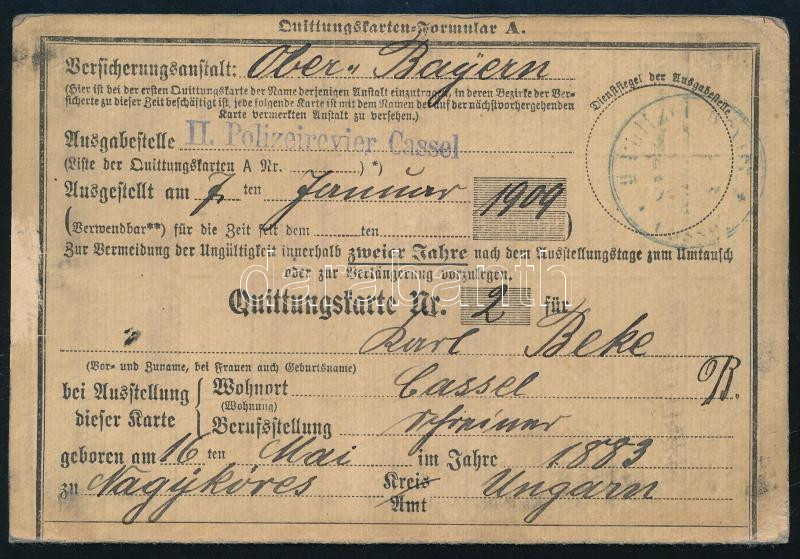 Quittungskarten-Formular A.
Versicherungsanstalt: Ober-Bayern
(Hier ist bei der ersten Quittungskarte die Name derjenigen Anstalt einzutragen, in deren Bezirke der Ver-
sicherte zu dieser Zeit beschäftigt ist, jede folgende Karte ist mit dem Namen der auf der nächstvorhergehenden
Karte vermerkten Anstalt zu versehen.)
Dienstsiegel der Ausgabestelle
Ausgabestelle II. Polizeirevier Cassel
(Liste der Quittungskarten A Nr. )*)
Ausgestellt am 7. ten Januar 1909
(Verwendbar**) für die Zeit seit dem ten )
Zur Vermeidung der Ungültigkeit innerhalb zweier Jahre nach dem Ausstellungstage zum Umtausch
oder zur Verlängerung vorzulegen.
darabanth
Quittungskarte Nr. 2 für
Karl Beke
(Vor- und Zuname, bei Frauen auch Geburtsname)
bei Ausstellung Wohnort Cassel B.
(Wohnung)
dieser Karte Berufsstellung Schreiner
geboren am 16 ten Mai im Jahre 1883
zu Nagyköres Kreis Ungarn
Amt